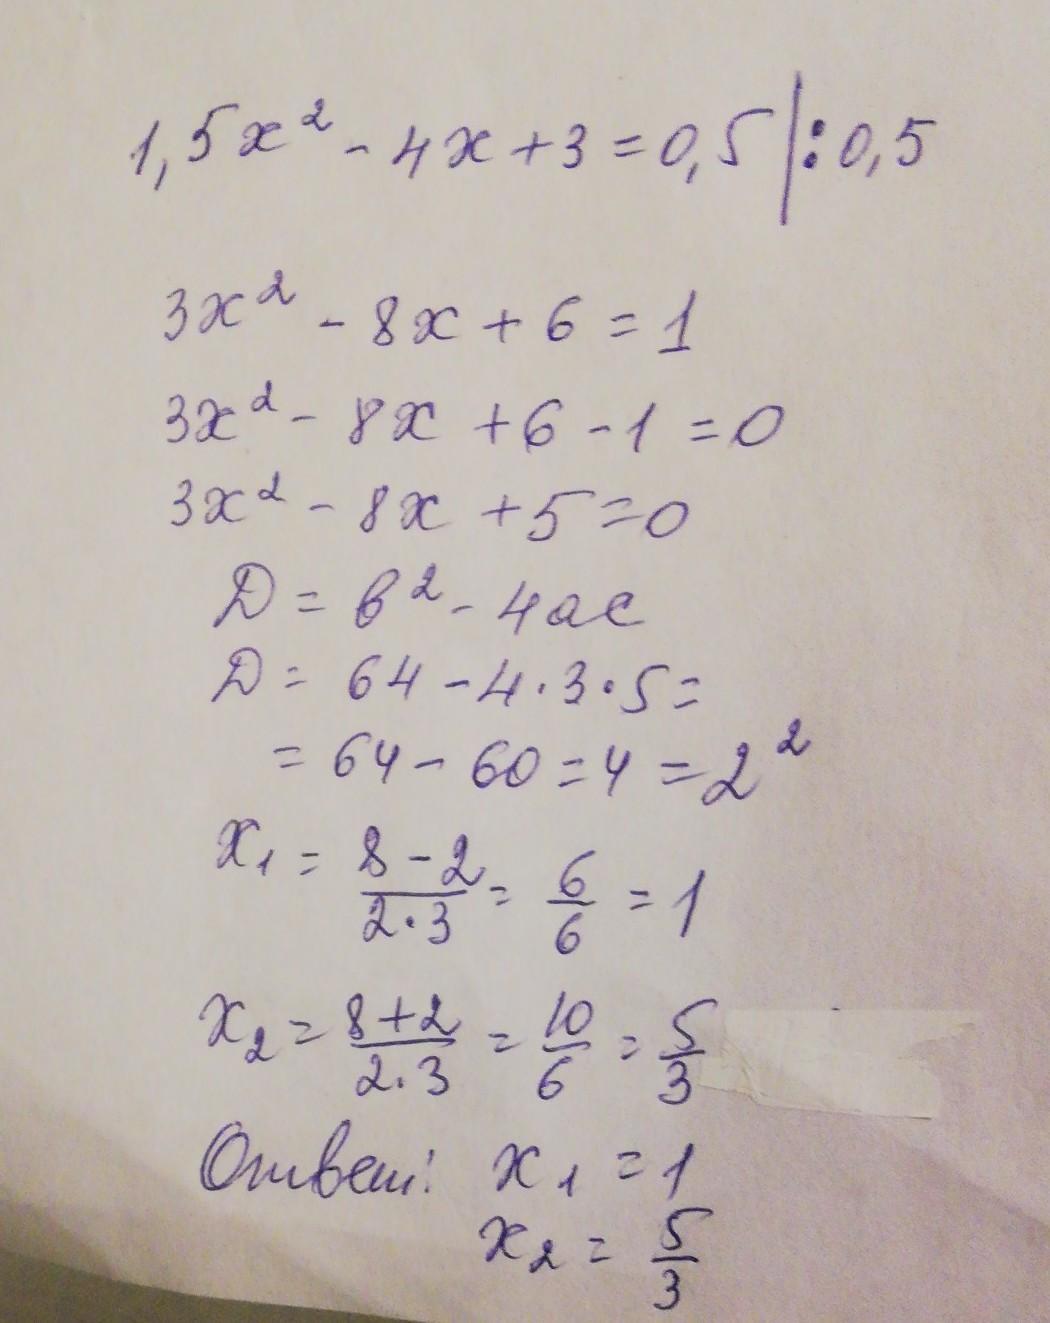 1,5x² - 4x + 3 = 0,5 | : 0,5
3x² - 8x + 6 = 1
3x² - 8x + 6 - 1 = 0
3x² - 8x + 5 = 0
D = в² - 4ac
D = 64 - 4·3·5 =
= 64 - 60 = 4 = 2²
x₁ = (8 - 2)/(2·3) = 6/6 = 1
x₂ = (8 + 2)/(2·3) = 10/6 = 5/3
Ответ: x₁ = 1
x₂ = 5/3